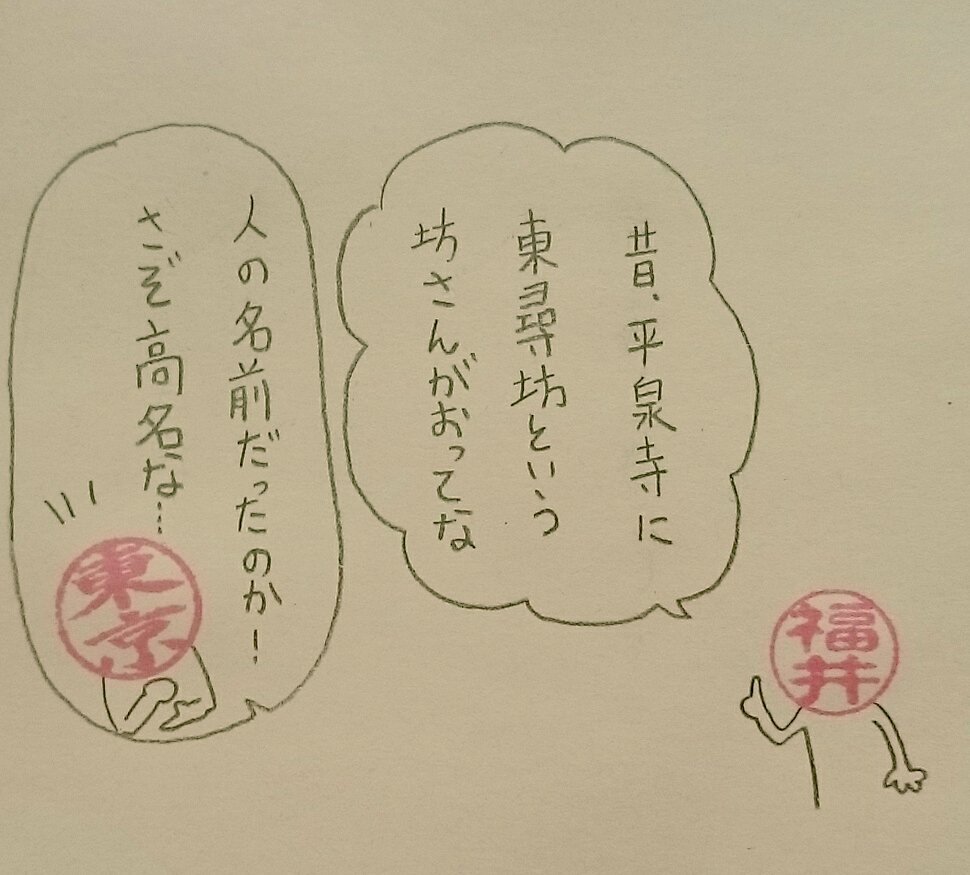 昔、平泉寺に
東尋坊という
坊さんがおってな
福井
人の名前だったのか!
さぞ高名な…
東京